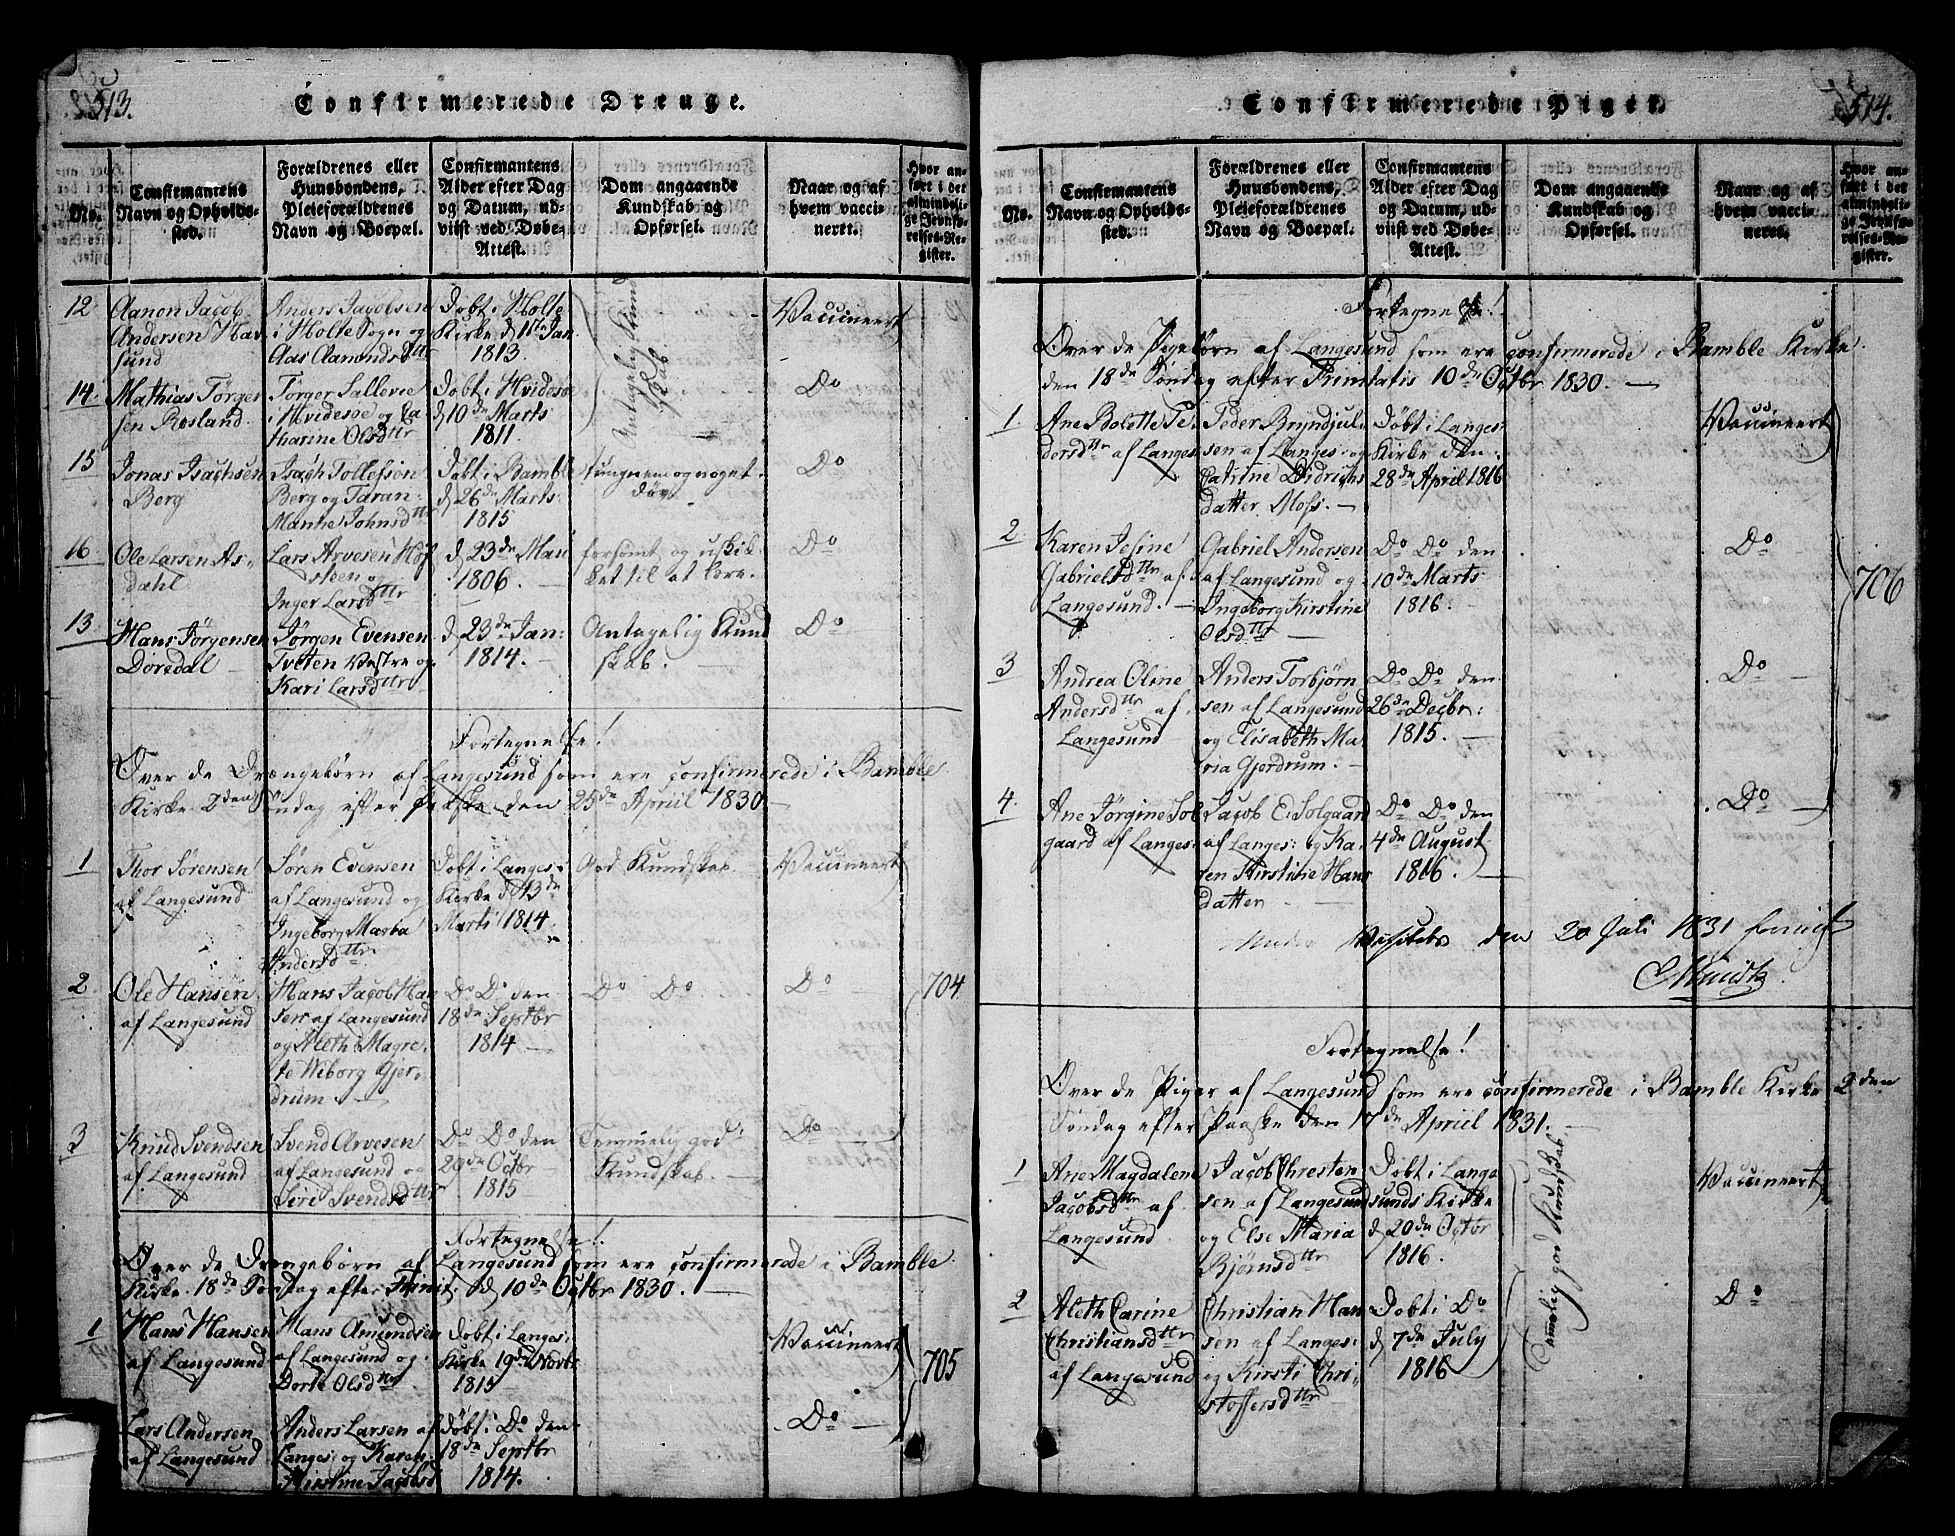 513.
Confirmerede Drenge.
No.
Confirmantens
Navn og Opholds-
sted.
Forældrenes eller
Huusbondens,
Pleieforældrenes
Navn og Boepæl.
Confirmantens
Alder efter Dag
og Datum, ud-
viist ved Døbe-
Attest.
Dom angaaende
Kundskab og
Opførsel.
Naar og af
hvem vacci-
neret.
Hvor an-
ført i det
almindeli-
ge Jevnfø-
relses-Re-
gister.
12
Aanon Jacob
Andersen Hav
sund
Anders Jacobsen
i Holte Sogn og
Aas Aamundsdttr
Døbt i Holte
Kirke d 11te Jan
1813.
Antagelig Kund
skab.
Vaccineert
14.
Mathias Tørger
sen Rosland
Tørger Sallevie
i Hvidesøe og Ca
tharine Olsdttr
Døbt i Hvidesø
d 10de Marts
1811.
Do
15
Jonas Isachsen
Berg
Isach Tollefson
Berg og Taran
Manthe Johnsdttr
Døbt i Bamble
d 26de Marts
1815
tungnem og noget
døv.
Do
16
Ole Larsen As-
dahl
Lars Arvesen Høg
steen og
Inger Larsdttr
d 23de Mai
1806.
forsømt og uskik-
ket til at lære.
Do
13
Hans Jørgensen
Doredal
Jørgen Evensen
Tveten Vestre og
Kari Larsdttr
d 23de Jan:
1814.
Antagelig Kund
skab.
Do
Fortegnelse!
Over de Drængebørn af Langesund som ere confirmerede i Bamble
Kirke 2den Søndag efter Paaske den 25de Apriil 1830
1
Thor Sørensen
af Langesund
Søren Evensen
af Langesund og
Ingeborg Maria
Andersdttr
Døbt i Langes:
Kirke d 13de
Marti 1814
God Kundskab.
Vaccineert
2
Ole Hansen
af Langesund
Hans Jacob Han
sen af Langesund
og Aleth Magre-
te Wiborg Gjer-
drum.
Do Do den
18de Septbr
1814
Do Do
Do
704
3
Knud Svendsen
af Langesund
Svend Arvesen
af Langesund og
Siri Svendsdttr
Do Do den
29de Octbr
1815
Temmelig god
Kundskab.
Do
Fortegnelse!
Over de Drengebørn af Langesund som ere confirmerede i Bamble
Kirke 18de Søndag efter Trinit: d 10de Octbr 1830.
1
Hans Hansen
af Langesund
Hans Amundsen
af Langesund og
Dorte Olsdttr
Døbt i Langes:
Kirke 19de Novbr
1815
Vaccineert
705
Lars Andersen
af Langesund
Anders Larsen af
Langes: og Karen
Kirstine Jacobsd
Døbt i Do den
18de Septbr
1814.
Do
514.
Confirmerede Piger.
No.
Confirmantens
Navn og Opholds-
sted.
Forældrenes eller
Huusbondens,
Pleieforældrenes
Navn og Boepæl.
Confirmantens
Alder efter Dag
og Datum, ud-
viist ved Døbe-
Attest.
Dom angaaende
Kundskab og
Opførsel.
Naar og af
hvem vacci-
neret.
Hvor an-
ført i det
almindeli-
ge Jevnfø-
relses-Re-
gister.
Fortegnelse!
Over de Pigebørn af Langesund som ere confirmerede i Bamble Kirke
den 18de Søndag efter Trinitatis 10de Octbr 1830.
1.
Ane Bolette Pe-
dersdttr af Langes:
Peder Bryndjul-
sen af Langes: og
Catrine Didrichs
datter Moss.
Døbt i Langes:
Kirke den
28de April 1816
Vaccineert
2
Karen Jesine
Gabrielsdttr af
Langesund.
Gabriel Andersen
af Langesund og
Ingeborg Kirstine
Olsdttr
Do Do den
10de Marts
1816.
Do
706
3
Andrea Oline
Andersdttr af
Langesund
Anders Torbjørn
sen af Langesund
og Elisabeth Ma
ria Gjerdrum.
Do Do den
26de Decbr:
1815.
Do
4.
Ane Jørgine Sol
gaard af Langes:
Jacob E. Solgaard
af Langes: og Ka-
ren Kirstine Hans
datter
Do Do den
4de August
1816.
Do
Under Visitats den 20 Juli 1831 
Fortegnelse!
Over de Piger af Langesund som ere confirmerede i Bamble Kirke 2den
Søndag efter Paaske den 17de Apriil 1831.
1
Ane Magdalene
Jacobsdttr af
Langesund
Jacob Chresten
sen af Langesund
og Else Maria
Bjørnsdttr
Døbt i Lange
sunds Kirke
d 20de Octbr
1816.
Temelig god Kundskab
Vaccineert
2
Aleth Carine
Christiansdttr
af Langesund
Christian Han
sen af Langes:
og Kirsti Chri-
stoffersdttr
Døbt i Do
d 7de July
1816
Do